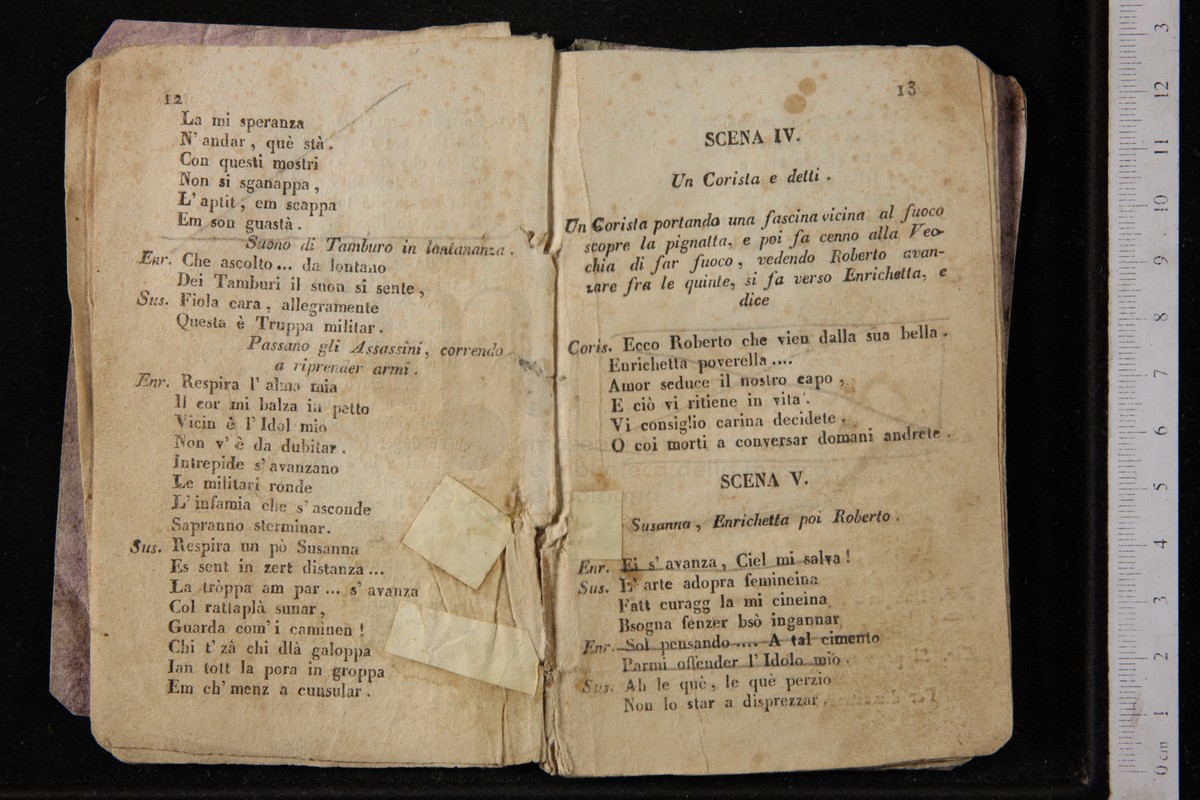 12
La mi speranza
N' andar, què stà.
Con questi mostri
Non si sganappa,
L' aptit, em scappa
Em son guastà.
Suono di Tamburo in lontananza.
Enr. Che ascolto... da lontano
Dei Tamburi il suon si sente,
Sus. Fiola cara, allegramente
Questa è Truppa militar.
Passano gli Assassini, correndo
a riprender armi.
Enr. Respira l' alma mia
Il cor mi balza in petto
Vicin è l' Idol mio
Non v' è da dubitar.
Intrepide s' avanzano
Le militari ronde
L' infamia che s' asconde
Sapranno sterminar.
Sus. Respira un pò Susanna
Es sent in zert distanza...
La tròppa am par... s' avanza
Col rattaplà sunar,
Guarda com' i caminen!
Chi t' zà chi dlà galoppa
Ian tott la pora in groppa
Em ch' menz a cunsular.
13
SCENA IV.
Un Corista e detti.
Un Corista portando una fascina vicina al fuoco
scopre la pignatta, e poi fa cenno alla Vec-
chia di far fuoco, vedendo Roberto avan-
zare fra le quinte, si fa verso Enrichetta, e
dice
Coris. Ecco Roberto che vien dalla sua bella.
Enrichetta poverella....
Amor seduce il nostro capo,
E ciò vi ritiene in vita.
Vi consiglio carina decidete.
O coi morti a conversar domani andrete.
SCENA V.
Susanna, Enrichetta poi Roberto.
Enr. Ei s' avanza, Ciel mi salva!
Sus. L' arte adopra femineina
Fatt curagg la mi cineina
Bsogna fenzer bsò ingannar
Enr. Sol pensando.... A tal cimento
Parmi offender l' Idolo mio.
Sus. Ah le què, le què perzio
Non lo star a disprezzar.